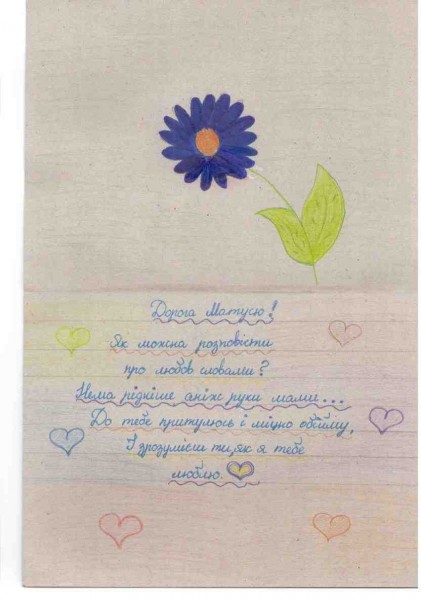 Дорога Матусю!
Як можна розповісти
про любов словами?
Нема рідніше аніж руки мами...
До тебе притулюсь і міцно обійму,
І зрозумієш ти, як я тебе
люблю.